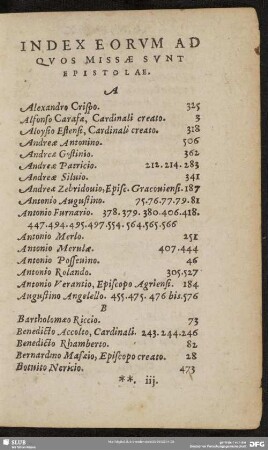 INDEX EORVM AD
QVOS MISSÆ SVNT
EPISTOLAE.
A
Alexandro Crispo. 325
Alfonso Carafæ, Cardinali creato. 3
Aloysio Estensi, Cardinali creato. 318
Andreæ Antonino. 506
Andreæ Gostinio. 362
Andreæ Patricio. 212.214.283
Andreæ Siluio. 341
Andreæ Zebridouio, Episc. Gracouiensi. 187
Antonio Augustino. 75.76.77.79.81
Antonio Furnario. 378.379.380.406.418.
447.494.495.497.554.564.565.566
Antonio Merlo. 251
Antonio Merulæ. 407.444
Antonio Posseuino. 46
Antonio Rolando. 305.527
Antonio Verantio, Episcopo Agriensi. 184
Augustino Angelello. 455.475.476 bis.576
B
Bartholomæo Riccio. 73
Benedicto Accolto, Cardinali. 243.244.246
Benedicto Rhamberto. 82
Bernardino Mafæio, Episcopo creato. 28
Botuito Nericio. 473
**. iij.
SLUB
DFG